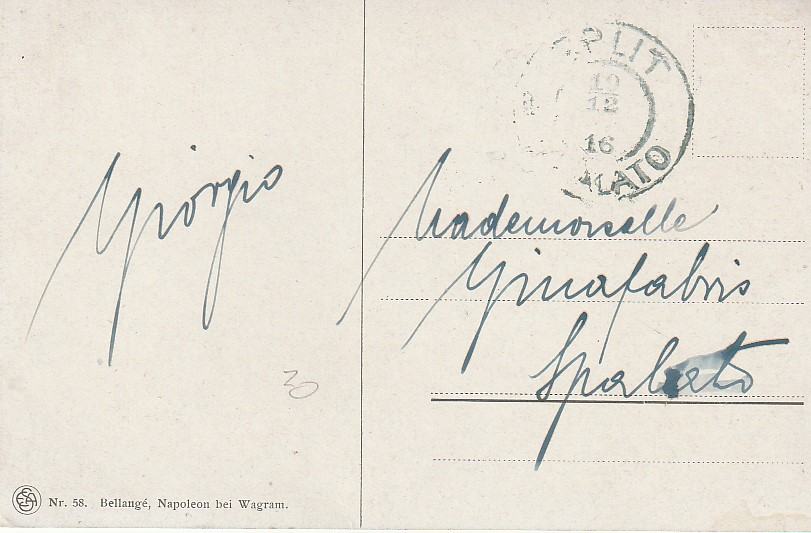 Giorgio
30
Nr. 58. Bellangé, Napoleon bei Wagram.
SPLIT
10
12
16
SPALATO
Mademoiselle
Gina Fabris
Spalato